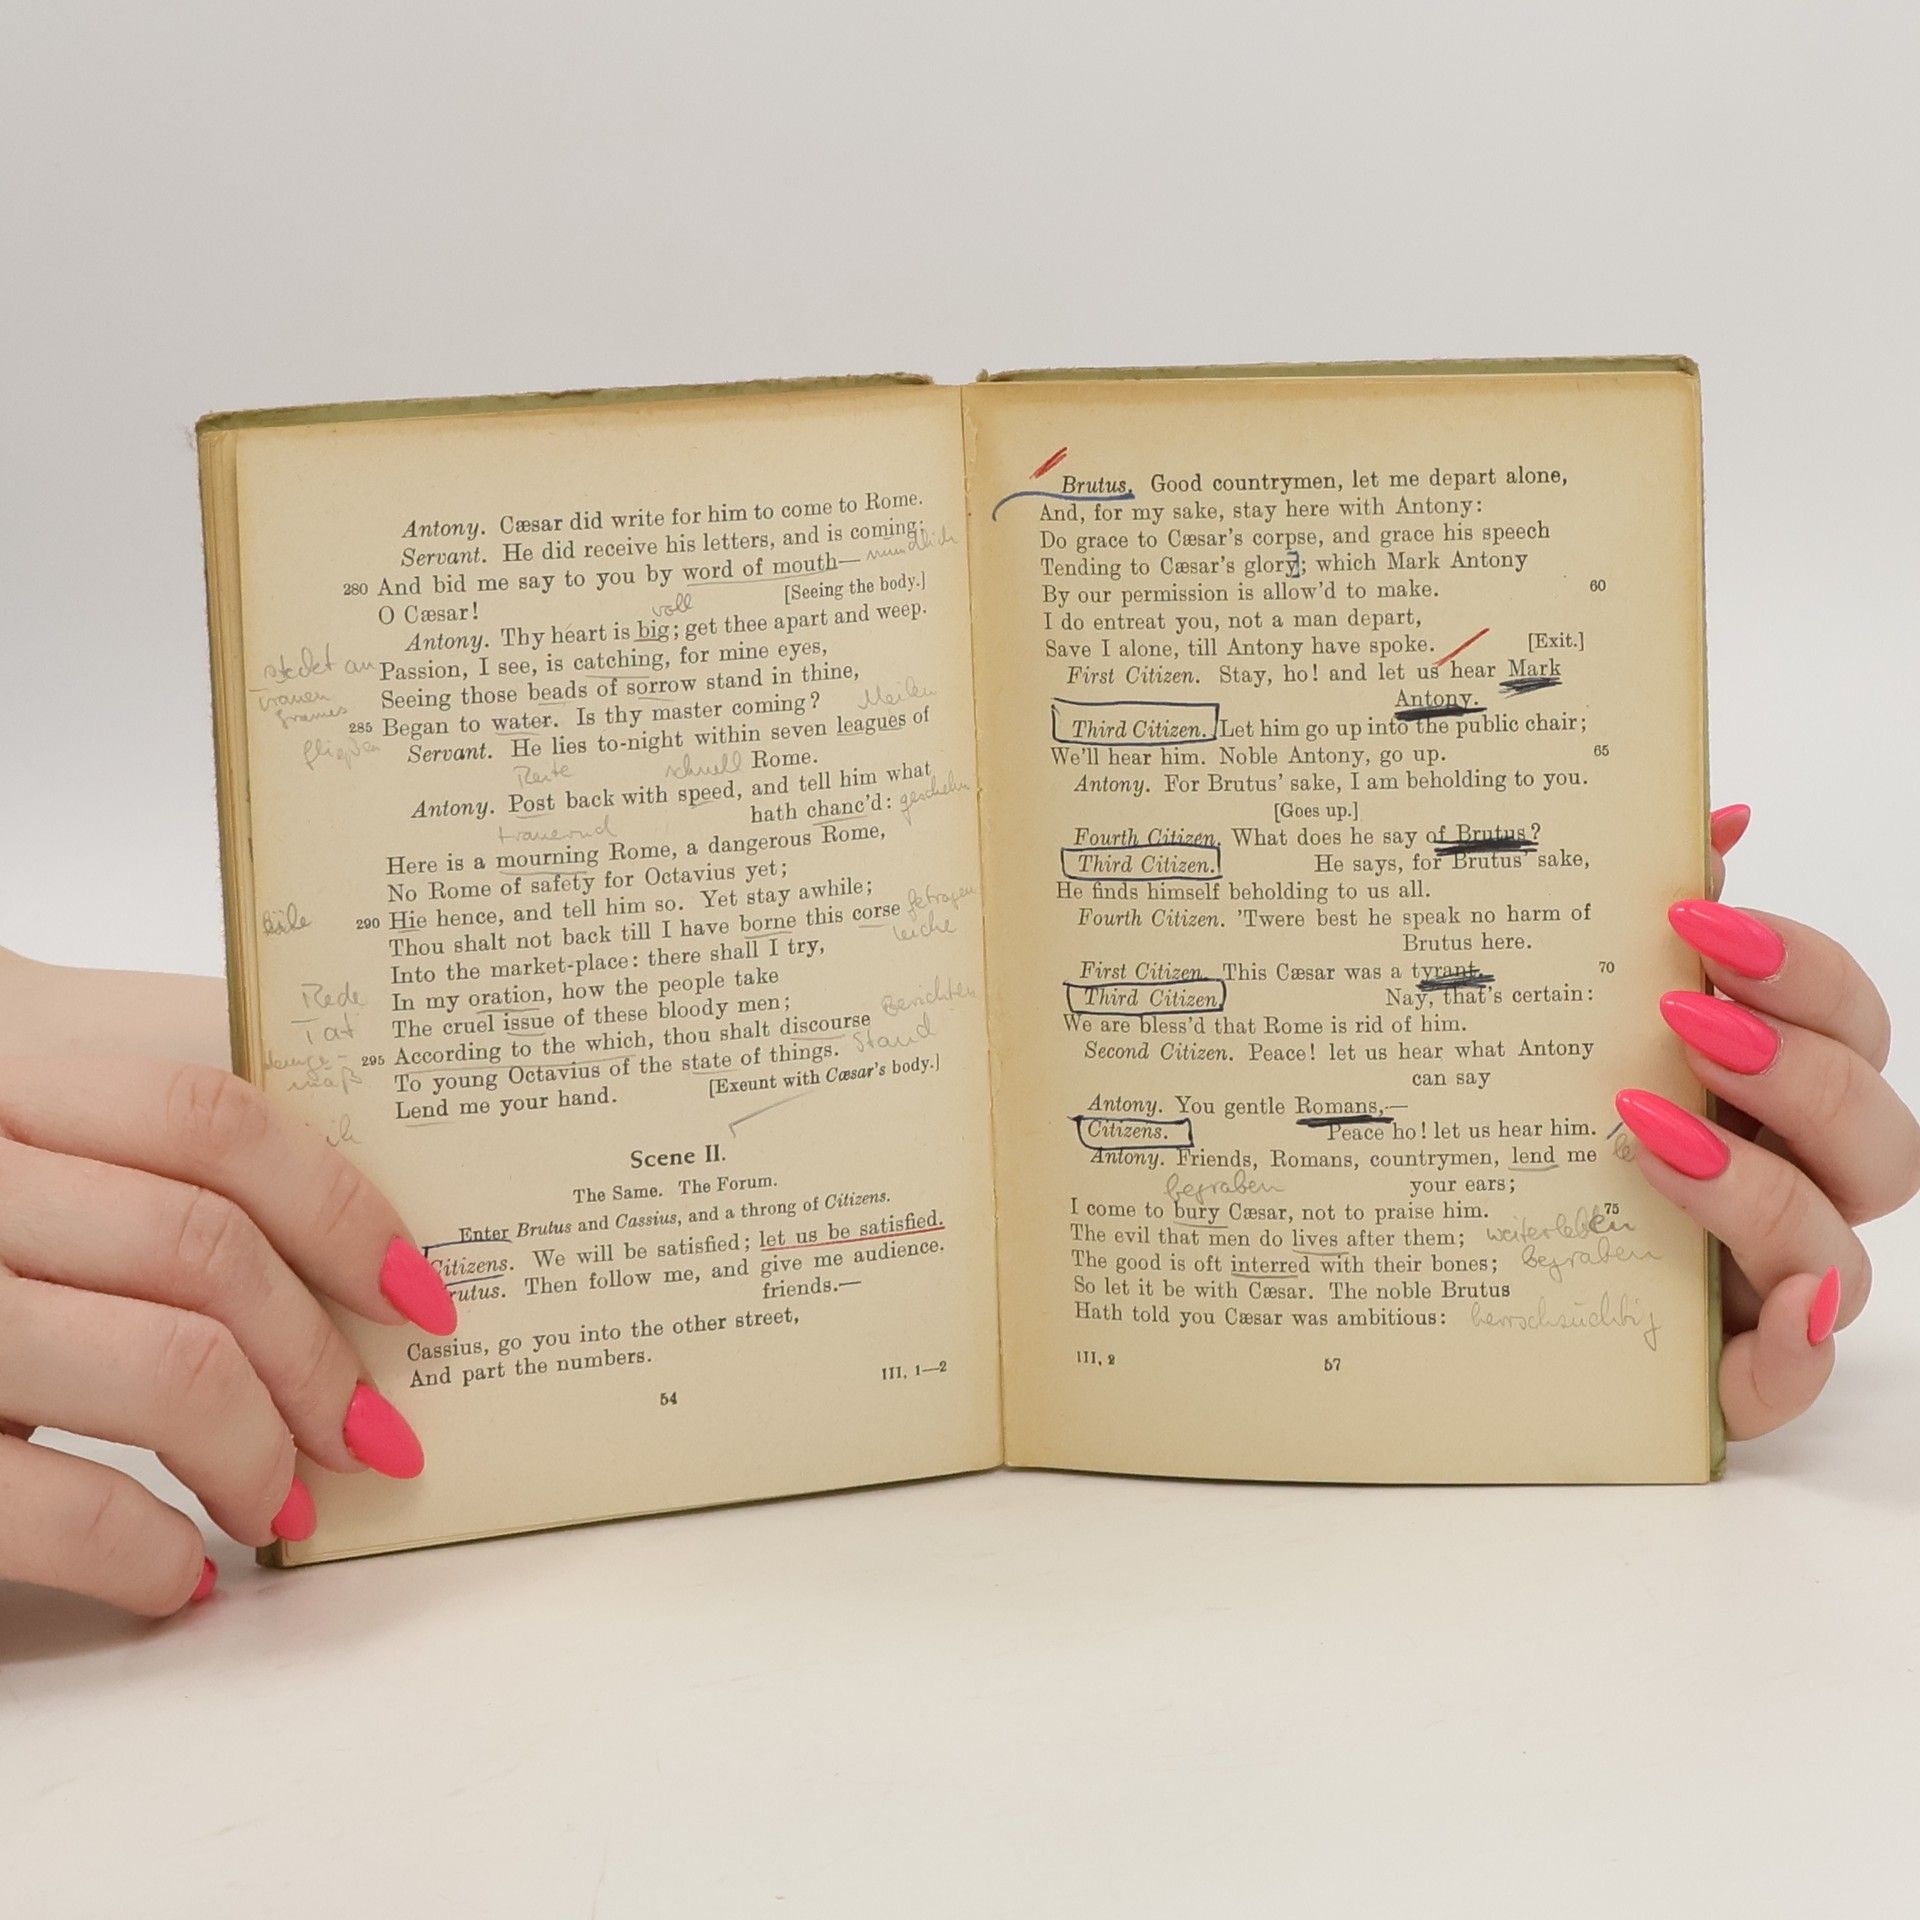 Antony. Cæsar did write for him to come to Rome.
Servant. He did receive his letters, and is coming;
280 And bid me say to you by word of mouth— mündlich
O Cæsar! [Seeing the body.]
voll
Antony. Thy heart is big; get thee apart and weep.
steckt an Passion, I see, is catching, for mine eyes,
Seeing those beads of sorrow stand in thine,
285 Began to water. Is thy master coming? Meilen
fließen Servant. He lies to-night within seven leagues of
Rome.
Reite schnell
Antony. Post back with speed, and tell him what
hath chanc'd: geschehn
trauernd
Here is a mourning Rome, a dangerous Rome,
No Rome of safety for Octavius yet;
290 Hie hence, and tell him so. Yet stay awhile;
Thou shalt not back till I have borne this corse getragen
Leiche
Into the market-place: there shall I try,
Rede In my oration, how the people take
Tat The cruel issue of these bloody men;
295 According to the which, thou shalt discourse Berichten
To young Octavius of the state of things. Stand
Lend me your hand. [Exeunt with Cæsar's body.]
Scene II.
The Same. The Forum.
Enter Brutus and Cassius, and a throng of Citizens.
Citizens. We will be satisfied; let us be satisfied.
rutus. Then follow me, and give me audience.
friends.—
Cassius, go you into the other street,
And part the numbers.
III, 1—2
54
Brutus. Good countrymen, let me depart alone,
And, for my sake, stay here with Antony:
Do grace to Cæsar's corpse, and grace his speech
Tending to Cæsar's glory; which Mark Antony
By our permission is allow'd to make. 60
I do entreat you, not a man depart,
Save I alone, till Antony have spoke. [Exit.]
First Citizen. Stay, ho! and let us hear Mark
Antony.
Third Citizen. Let him go up into the public chair;
We'll hear him. Noble Antony, go up. 65
Antony. For Brutus' sake, I am beholding to you.
[Goes up.]
Fourth Citizen. What does he say of Brutus?
Third Citizen. He says, for Brutus' sake,
He finds himself beholding to us all.
Fourth Citizen. 'Twere best he speak no harm of
Brutus here.
First Citizen. This Cæsar was a tyrant. 70
Third Citizen. Nay, that's certain:
We are bless'd that Rome is rid of him.
Second Citizen. Peace! let us hear what Antony
can say
Antony. You gentle Romans,—
Citizens. Peace ho! let us hear him.
Antony. Friends, Romans, countrymen, lend me
begraben your ears;
I come to bury Cæsar, not to praise him. 75
The evil that men do lives after them; weiterleben
The good is oft interred with their bones; begraben
So let it be with Cæsar. The noble Brutus
Hath told you Cæsar was ambitious: herrschsüchtig
III, 2
57